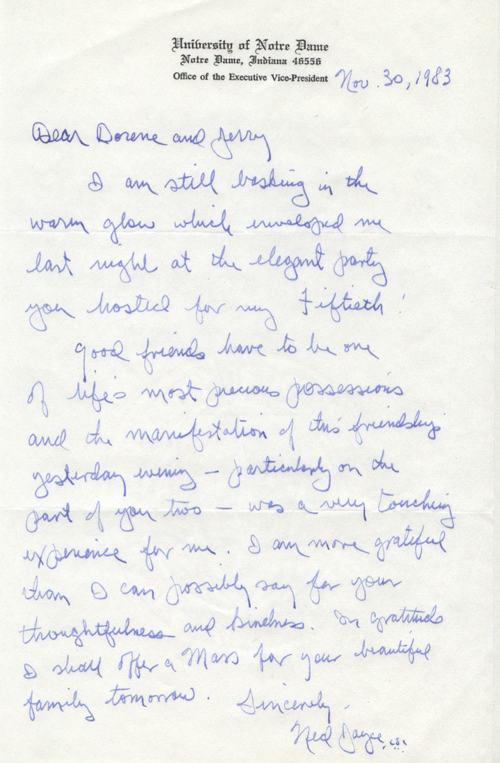 University of Notre Dame
Notre Dame, Indiana 46556
Office of the Executive Vice-President
Nov. 30, 1983
Dear Dorene and Jerry
I am still basking in the
warm glow which enveloped me
last night at the elegant party
you hosted for my Fiftieth!
Good friends have to be one
of life's most precious possessions
and the manifestation of this friendship
yesterday evening – particularly on the
part of you two – was a very touching
experience for me. I am more grateful
than I can possibly say for your
thoughtfulness and kindness. In gratitude
I shall offer a Mass for your beautiful
family tomorrow.
Sincerely,
Ned Joyce, csc